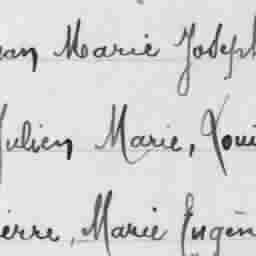 ean Marie Joseph
Julien Marie, Loui
ierre, Marie Eugèn